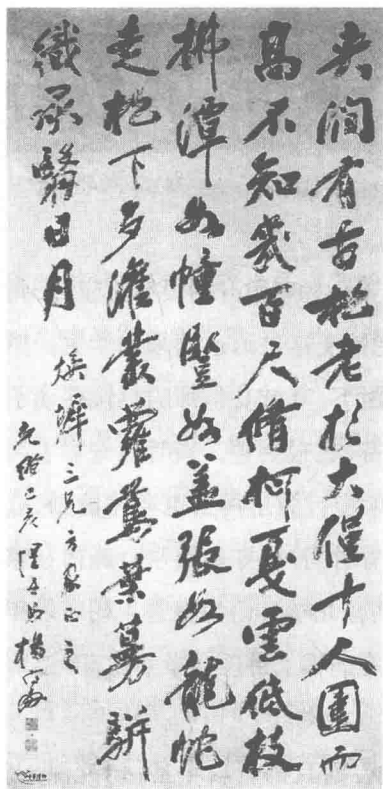 夾澗有古松老杉大僅十人圍而
高不知幾百尺脩柯戛雲低枝
拂潭如幢豎如蓋張如龍蛇
走松下多灌叢蘿蔦葉蔓駢
織承翳日月
煥墀三兄方家正之
光緒己亥惺吾弟楊守敬